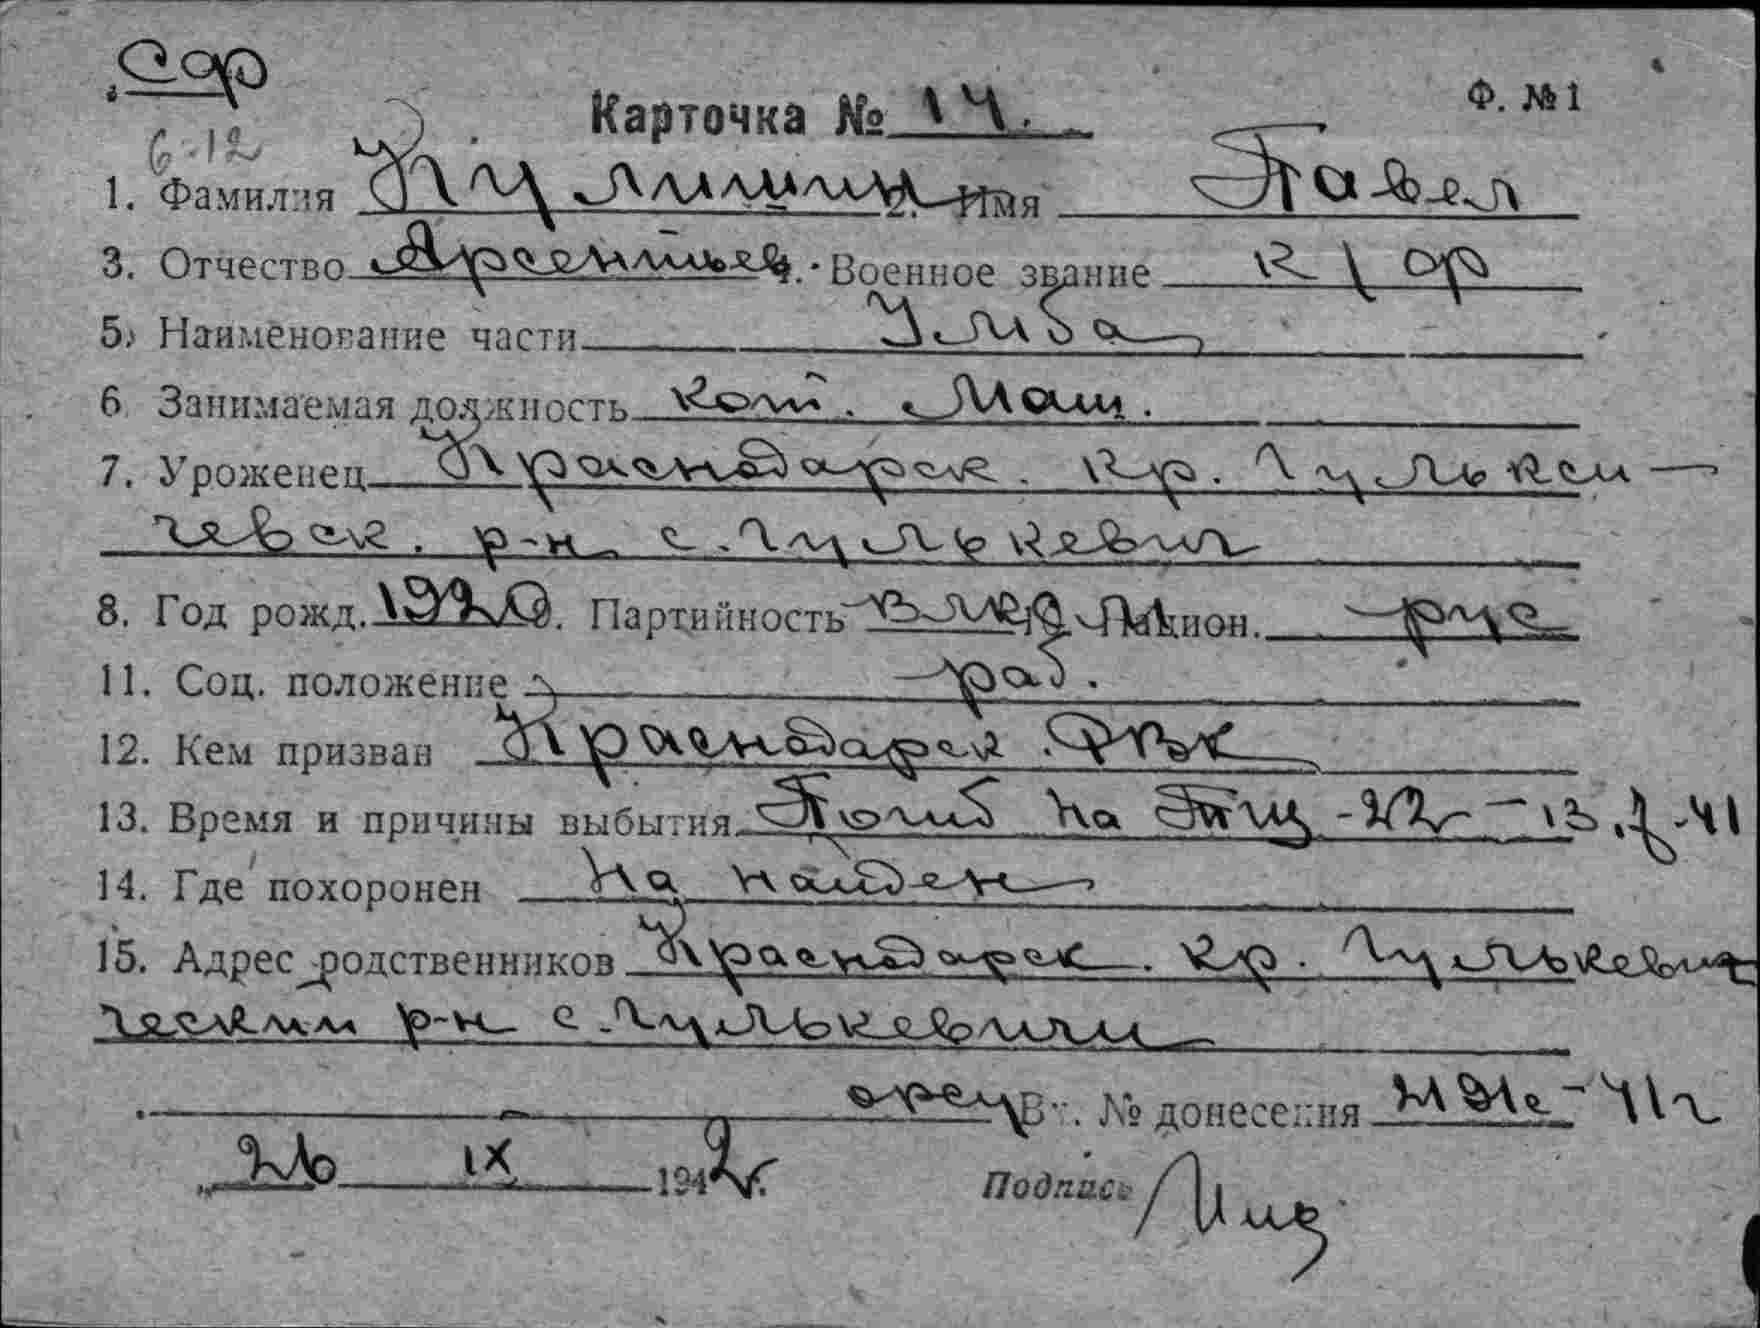 Сф
Карточка № 14. Ф. №1
6-12
1. Фамилия Кулишин 2. Имя Павел
3. Отчество Арсентьев. Военное звание к/ф
5. Наименование части Умба
6. Занимаемая должность кот. Маш.
7. Уроженец Краснодарск. кр. Гулькеи-
чевск. р-н с. Гулькевич
8. Год рожд. 1920. Партийность ВЛКСМ Национ. рус
11. Соц. положение раб.
12. Кем призван Краснодарск. РВК
13. Время и причины выбытия Погиб на ТЩ-22 - 13.7-41
14. Где похоронен На найден
15. Адрес родственников Краснодарск. кр. Гулькевич
ческий р-н с. Гулькевичи
Вх. № донесения 2191с-41г
26 IX 1942г.
Подпись